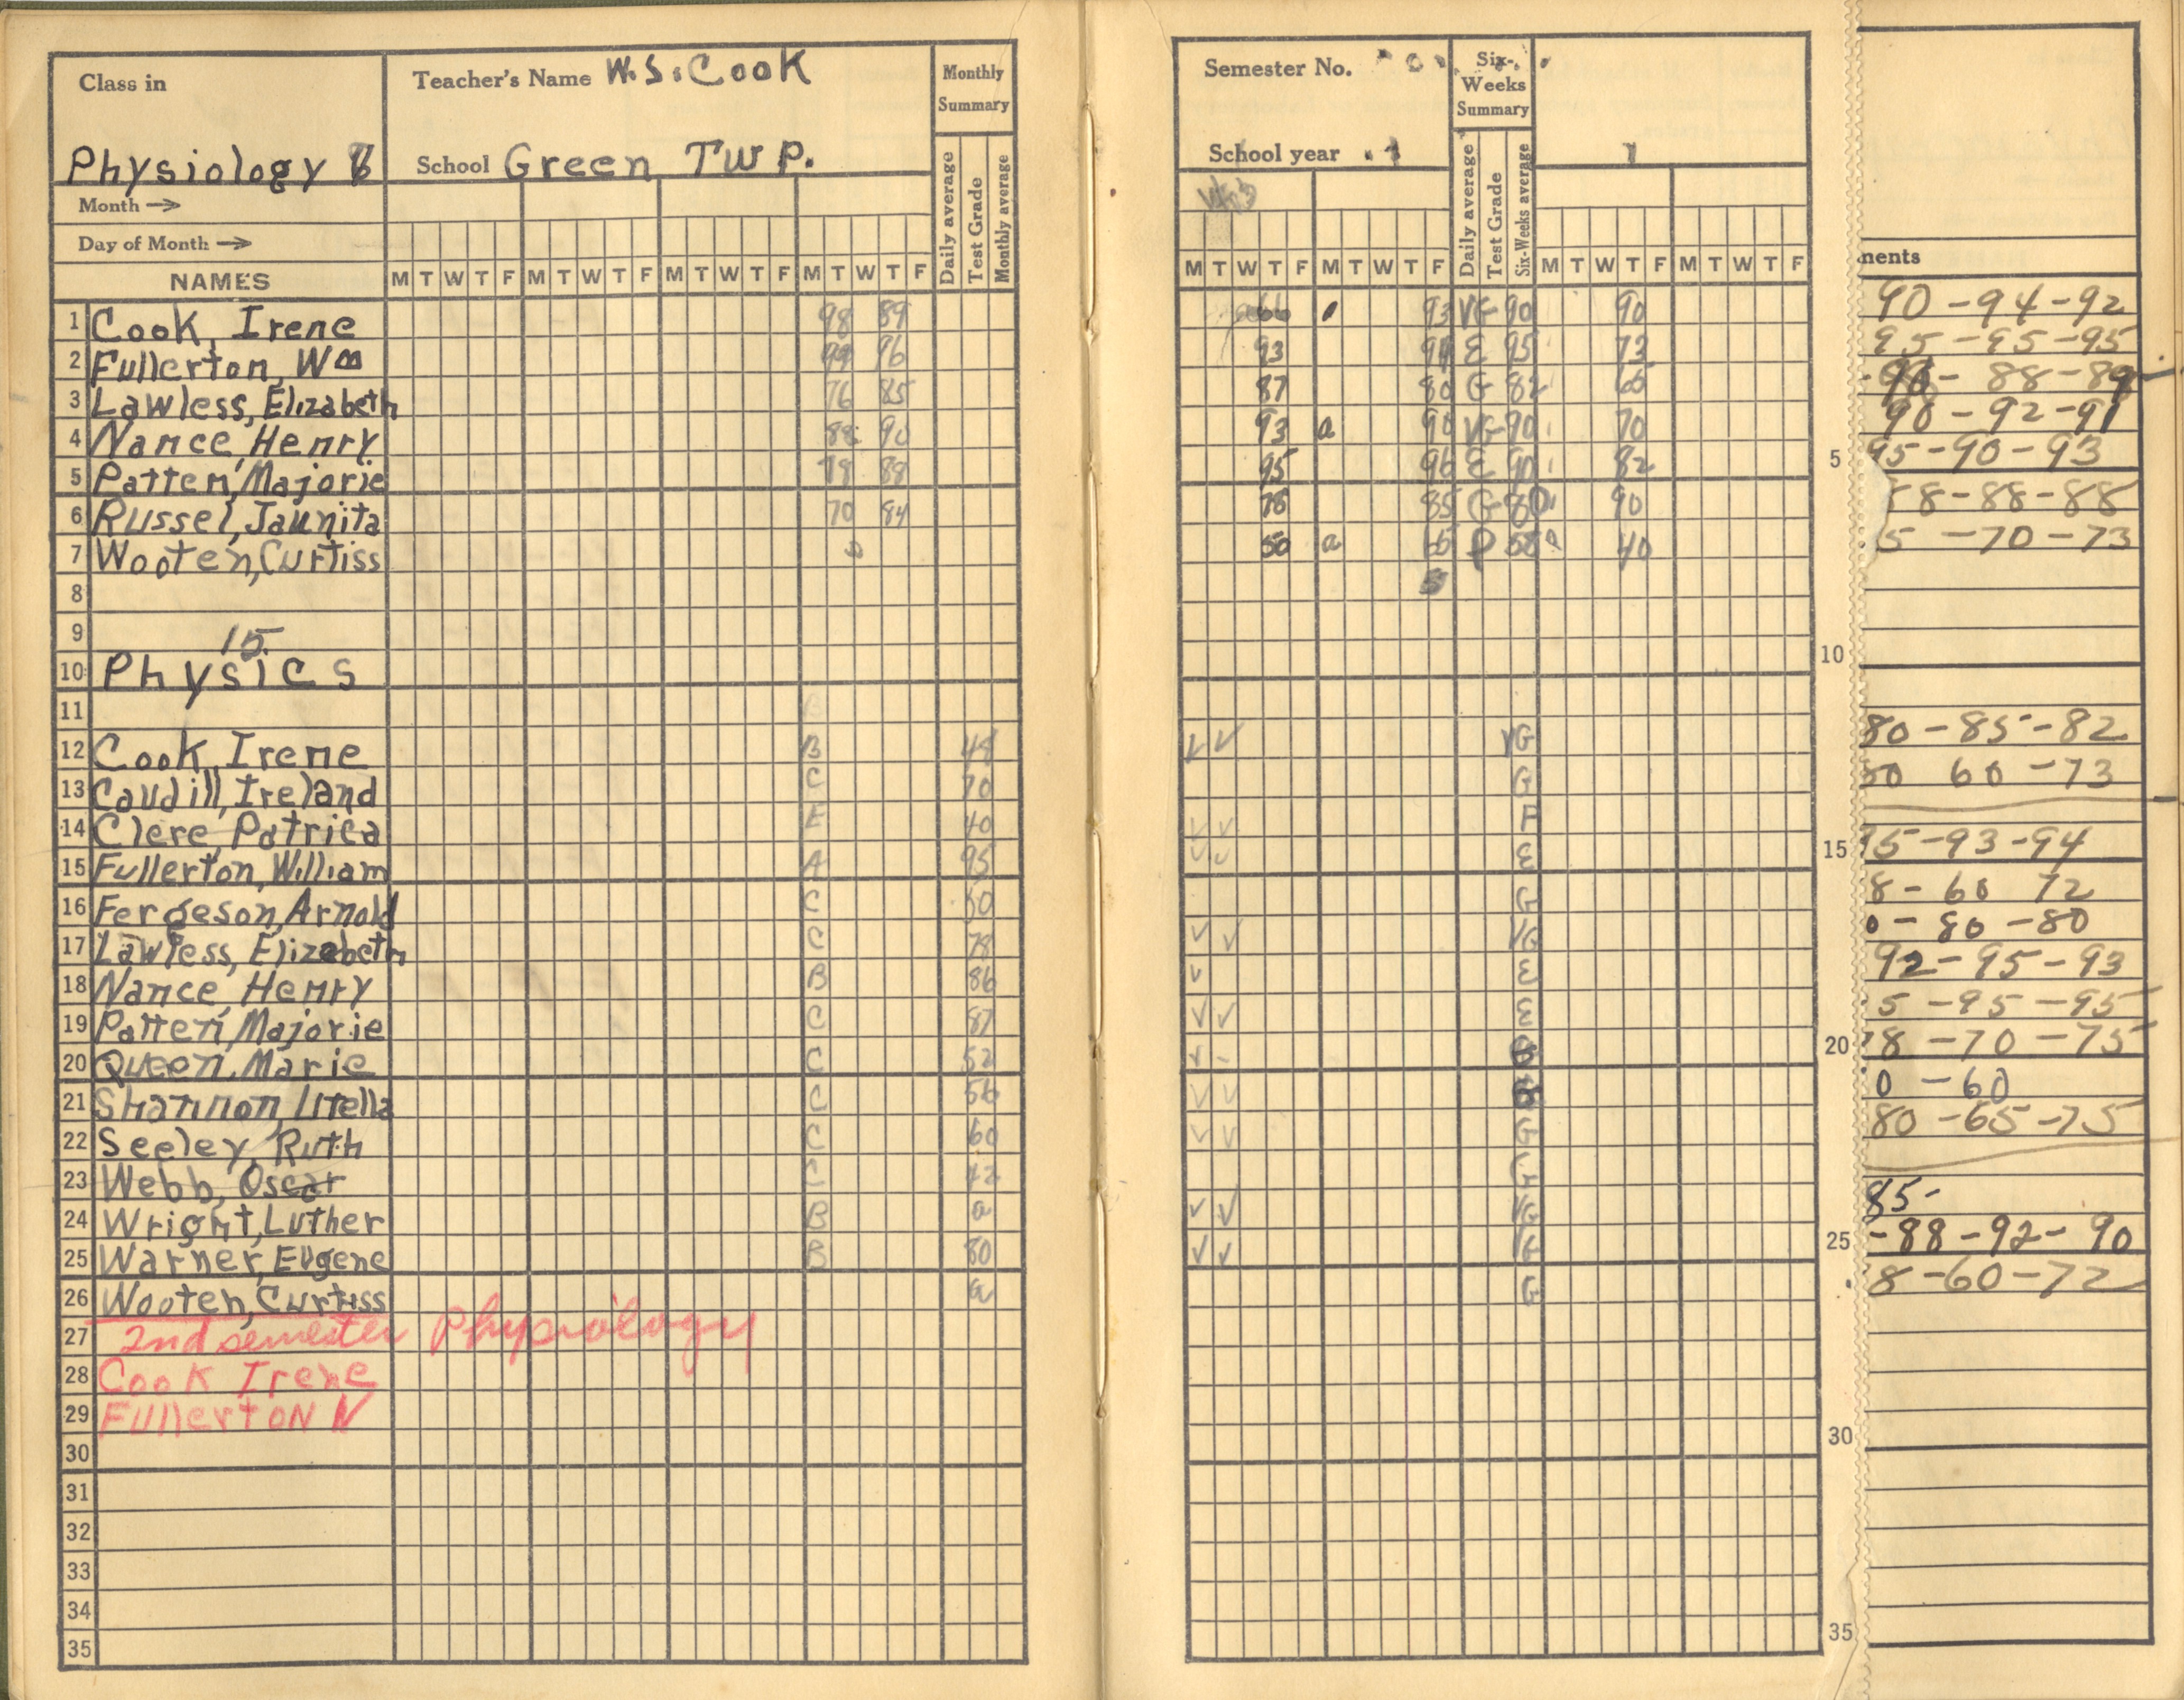 Class in
Physiology
Teacher's Name W.S. Cook
School Green Twp.
Monthly Summary
Daily average
Test Grade
Monthly average
Month →
Day of Month →
NAMES
M T W T F M T W T F M T W T F M T W T F
1 Cook, Irene 98 89
2 Fullerton, Wm 99 96
3 Lawless, Elizabeth 76 85
4 Nance, Henry 88 90
5 Patten, Majorie 78 88
6 Russel, Jaunita 70 84
7 Wooten, Curtiss
8
9 15
10 Physics
11 B
12 Cook, Irene B 48
13 Caudill, Ireland C 70
14 Clere, Patrica E 40
15 Fullerton, William A 95
16 Fergeson, Arnold C 50
17 Lawless, Elizabeth C 78
18 Nance, Henry B 86
19 Patten, Majorie C 87
20 Queen, Marie C 52
21 Shannon, Itella C 56
22 Seeley, Ruth C 60
23 Webb, Oscar C 42
24 Wright, Luther B a
25 Warner, Eugene B 80
26 Wooten, Curtiss a
27 2nd semester Physiology
28 Cook Irene
29 Fullerton W
30
31
32
33
34
35
Semester No.
School year
Six-Weeks Summary
Daily average
Test Grade
Six-Weeks average
M T W T F M T W T F M T W T F M T W T F
93 VG 90 90
93 94 E 95 73
87 80 G 82 65
93 a 90 VG 90 70
95 96 E 90 82
78 85 G 80 90
50 a 65 P 58 a 40
✓ ✓ VG
G
✓ ✓ F
✓ ✓ E
G
✓ ✓ VG
✓ E
✓ ✓ E
✓ -
✓ ✓
✓ ✓ G
G
✓ ✓ VG
✓ ✓ VG
G
5
10
15
20
25
30
35
ments
90 - 94 - 92
95 - 95 - 95
88 - 89
90 - 92 - 91
95 - 90 - 93
8 - 88 - 88
5 - 70 - 73
80 - 85 - 82
50 60 - 73
95 - 93 - 94
8 - 60 72
0 - 80 - 80
92 - 95 - 93
5 - 95 - 95
78 - 70 - 75
0 - 60
80 - 65 - 75
85 -
- 88 - 92 - 90
8 - 60 - 72